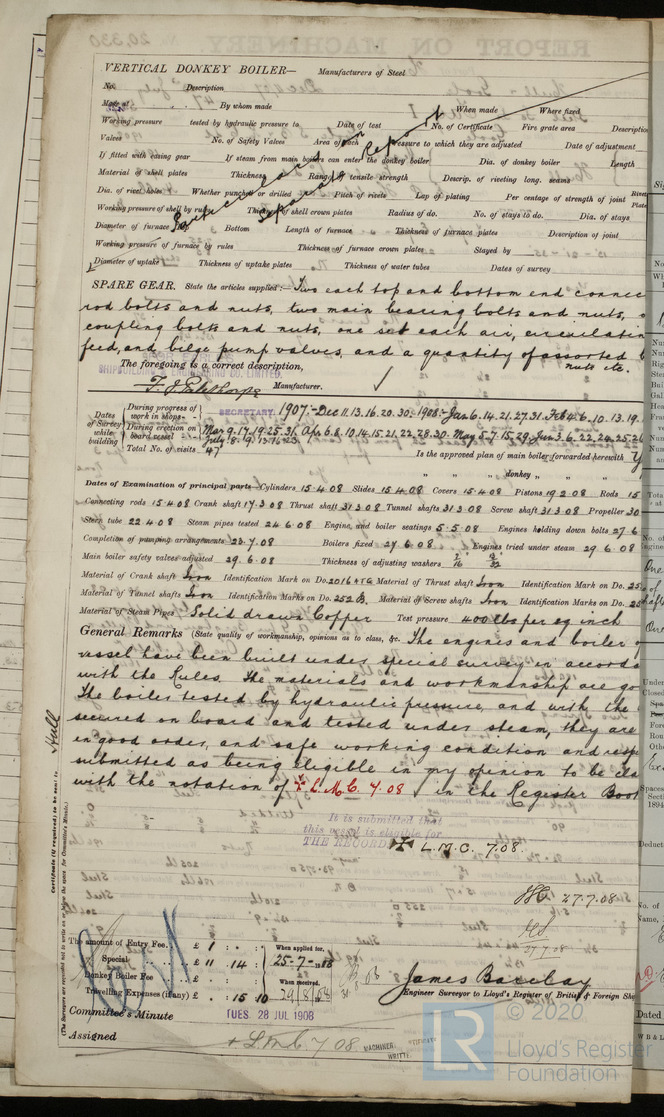 VERTICAL DONKEY BOILER— Manufacturers of Steel
No. Description
Made at By whom made When made Where fixed
Working pressure tested by hydraulic pressure to Date of test No. of Certificate Fire grate area Descriptio
Valves No. of Safety Valves Area of each Pressure to which they are adjusted Date of adjustment
If fitted with easing gear If steam from main boilers can enter the donkey boiler Dia. of donkey boiler Length
Material of shell plates Thickness Range of tensile strength Descrip. of riveting long. seams
Dia. of rivet holes Whether punched or drilled Pitch of rivets Lap of plating Per centage of strength of joint Rivets
Plate
Working pressure of shell by rules Thickness of shell crown plates Radius of do. No. of stays to do. Dia. of stays
Diameter of furnace Top Bottom Length of furnace Thickness of furnace plates Description of joint
Working pressure of furnace by rules Thickness of furnace crown plates Stayed by
Diameter of uptake Thickness of uptake plates Thickness of water tubes Dates of survey
Particulars on
Separate Report
SPARE GEAR. State the articles supplied:— Two each top and bottom end connec
rod bolts and nuts, two main bearing bolts and nuts,
coupling bolts and nuts, one set each air, circulatin
feed, and bilge pump valves, and a quantity of assorted b
nuts etc.
The foregoing is a correct description,
SHIPBUILDING & ENGINEERING CO. LIMITED.
Manufacturer.
SECRETARY
Dates of Survey while building
During progress of work in shops - 1907:- Dec 11. 13. 16. 20. 30. 1908:- Jan 6. 14. 21. 27. 31. Feb 4. 6. 10. 13. 19.
During erection on board vessel - Mar 9. 17. 19. 25. 31. Apr 6. 8. 10. 14. 15. 21. 22. 28. 30. May 5. 7. 15. 29. Jun 3. 6. 22. 24. 25. 26
July 8. 9. 13. 16. 23.
Total No. of visits 47
Is the approved plan of main boiler forwarded herewith Y
" " " donkey " " "
Dates of Examination of principal parts—Cylinders 15.4.08 Slides 15.4.08 Covers 15.4.08 Pistons 19.2.08 Rods 15
Connecting rods 15.4.08 Crank shaft 17.3.08 Thrust shaft 31.3.08 Tunnel shafts 31.3.08 Screw shaft 31.3.08 Propeller 30
Stern tube 22.4.08 Steam pipes tested 24.6.08 Engine and boiler seatings 5.5.08 Engines holding down bolts 27.6
Completion of pumping arrangements 23.7.08 Boilers fixed 27.6.08 Engines tried under steam 29.6.08
Main boiler safety valves adjusted 29.6.08 Thickness of adjusting washers
Material of Crank shaft Iron Identification Mark on Do. 2016 Material of Thrust shaft Iron Identification Mark on Do. 25
Material of Tunnel shafts Iron Identification Marks on Do. 252 B. Material of Screw shafts Iron Identification Marks on Do. 25
Material of Steam Pipes Solid drawn Copper Test pressure 400 lbs per sq inch
General Remarks (State quality of workmanship, opinions as to class, &c. The engines and boiler
vessel have been built under special survey in accorda
with the Rules. The materials and workmanship are go
The boiler tested by hydraulic pressure, and with the
secured on board and tested under steam, they are
in good order, and safe working condition and resp
submitted as being eligible in my opinion to be cla
with the notation of + L.M.C. 7.08 in the Register Book
It is submitted that
this vessel is eligible for
THE RECORD + L.M.C. 7.08.
27.7.08
27.7.08
Certificate (if required) to be sent to Hull
(The Surveyors are requested not to write on or below the space for Committee's Minute.)
The amount of Entry Fee. . £ 1 : . : When applied for,
Special . . £ 11 . 14 : 25-7-1908
Donkey Boiler Fee . . £ : : When received,
Travelling Expenses (if any) £ . 15. 10 29/8/08
James Barclay
Engineer Surveyor to Lloyd's Register of British & Foreign Sh
Committee's Minute TUES. 28 JUL 1908
Assigned + L.M.C. 7.08
MACHINERY
WRITTE
© 2020
LR
Lloyd's Register
Foundation